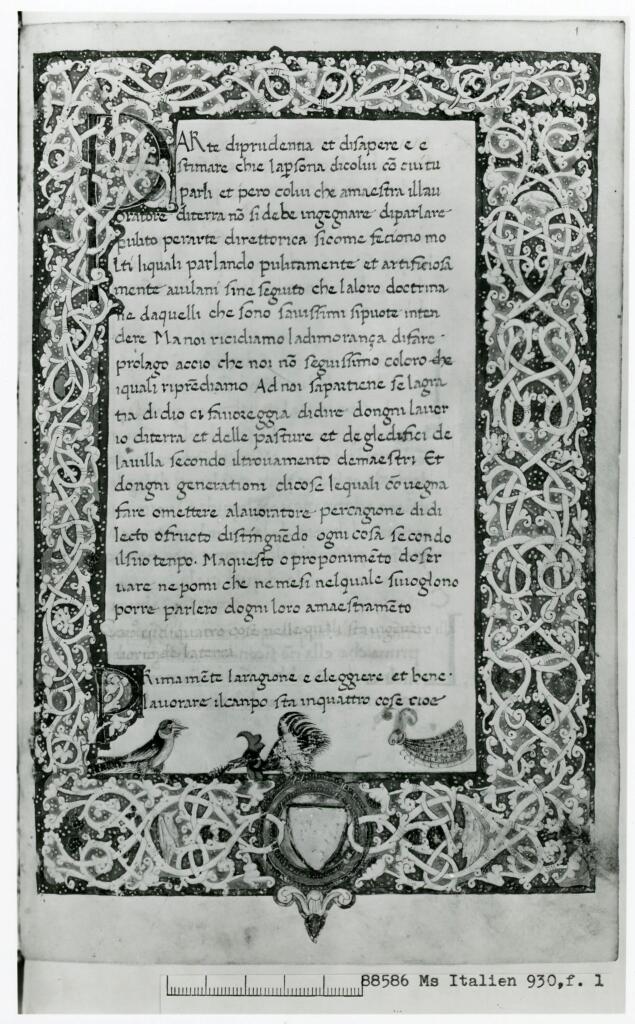 PARte diprudentia et disapere e e
stimare chie lapsona dicolui cō cui tu
parli et pero colui che amaestra illau
oratore diterra nō si debe ingegnare diparlare
pulito perarte direttorica sicome feciono mo
lti liquali parlando pulitamente et artificiosa
mente auilani sine seguito che laloro doctrina
ne daquelli che sono sauissimi sipuote inten
dere Ma noi ricidiamo ladimorança difare
prolago accio che noi nō seguissimo coloro che
iquali riprēdiamo Ad noi sapartiene se lagra
tia di dio ci fauoreggia didire dongni lauor
io diterra et delle pasture et degledifici de
lauilla secondo iltrouamento demaestri Et
dongni generationi dicose lequali cōuegna
fare omettere alauoratore percagione di di
lecto ofructo distinguēdo ogni cosa secondo
ilsuo tenpo. Maquesto o proponimēto doser
uare ne pomi che nemesi nelquale siuoglono
porre parlero dogni loro amaestramēto
quatro cose nelle quali sta
Primamēte laragione e eleggiere et bene
lauorare ilcanpo sta inquattro cose cioe
88586 Ms Italien 930, f. 1